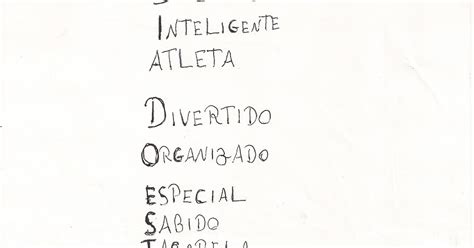 INTELIGENTE
ATLETA
DIVERTIDO
ORGANIZADO
ESPECIAL
SABIDO